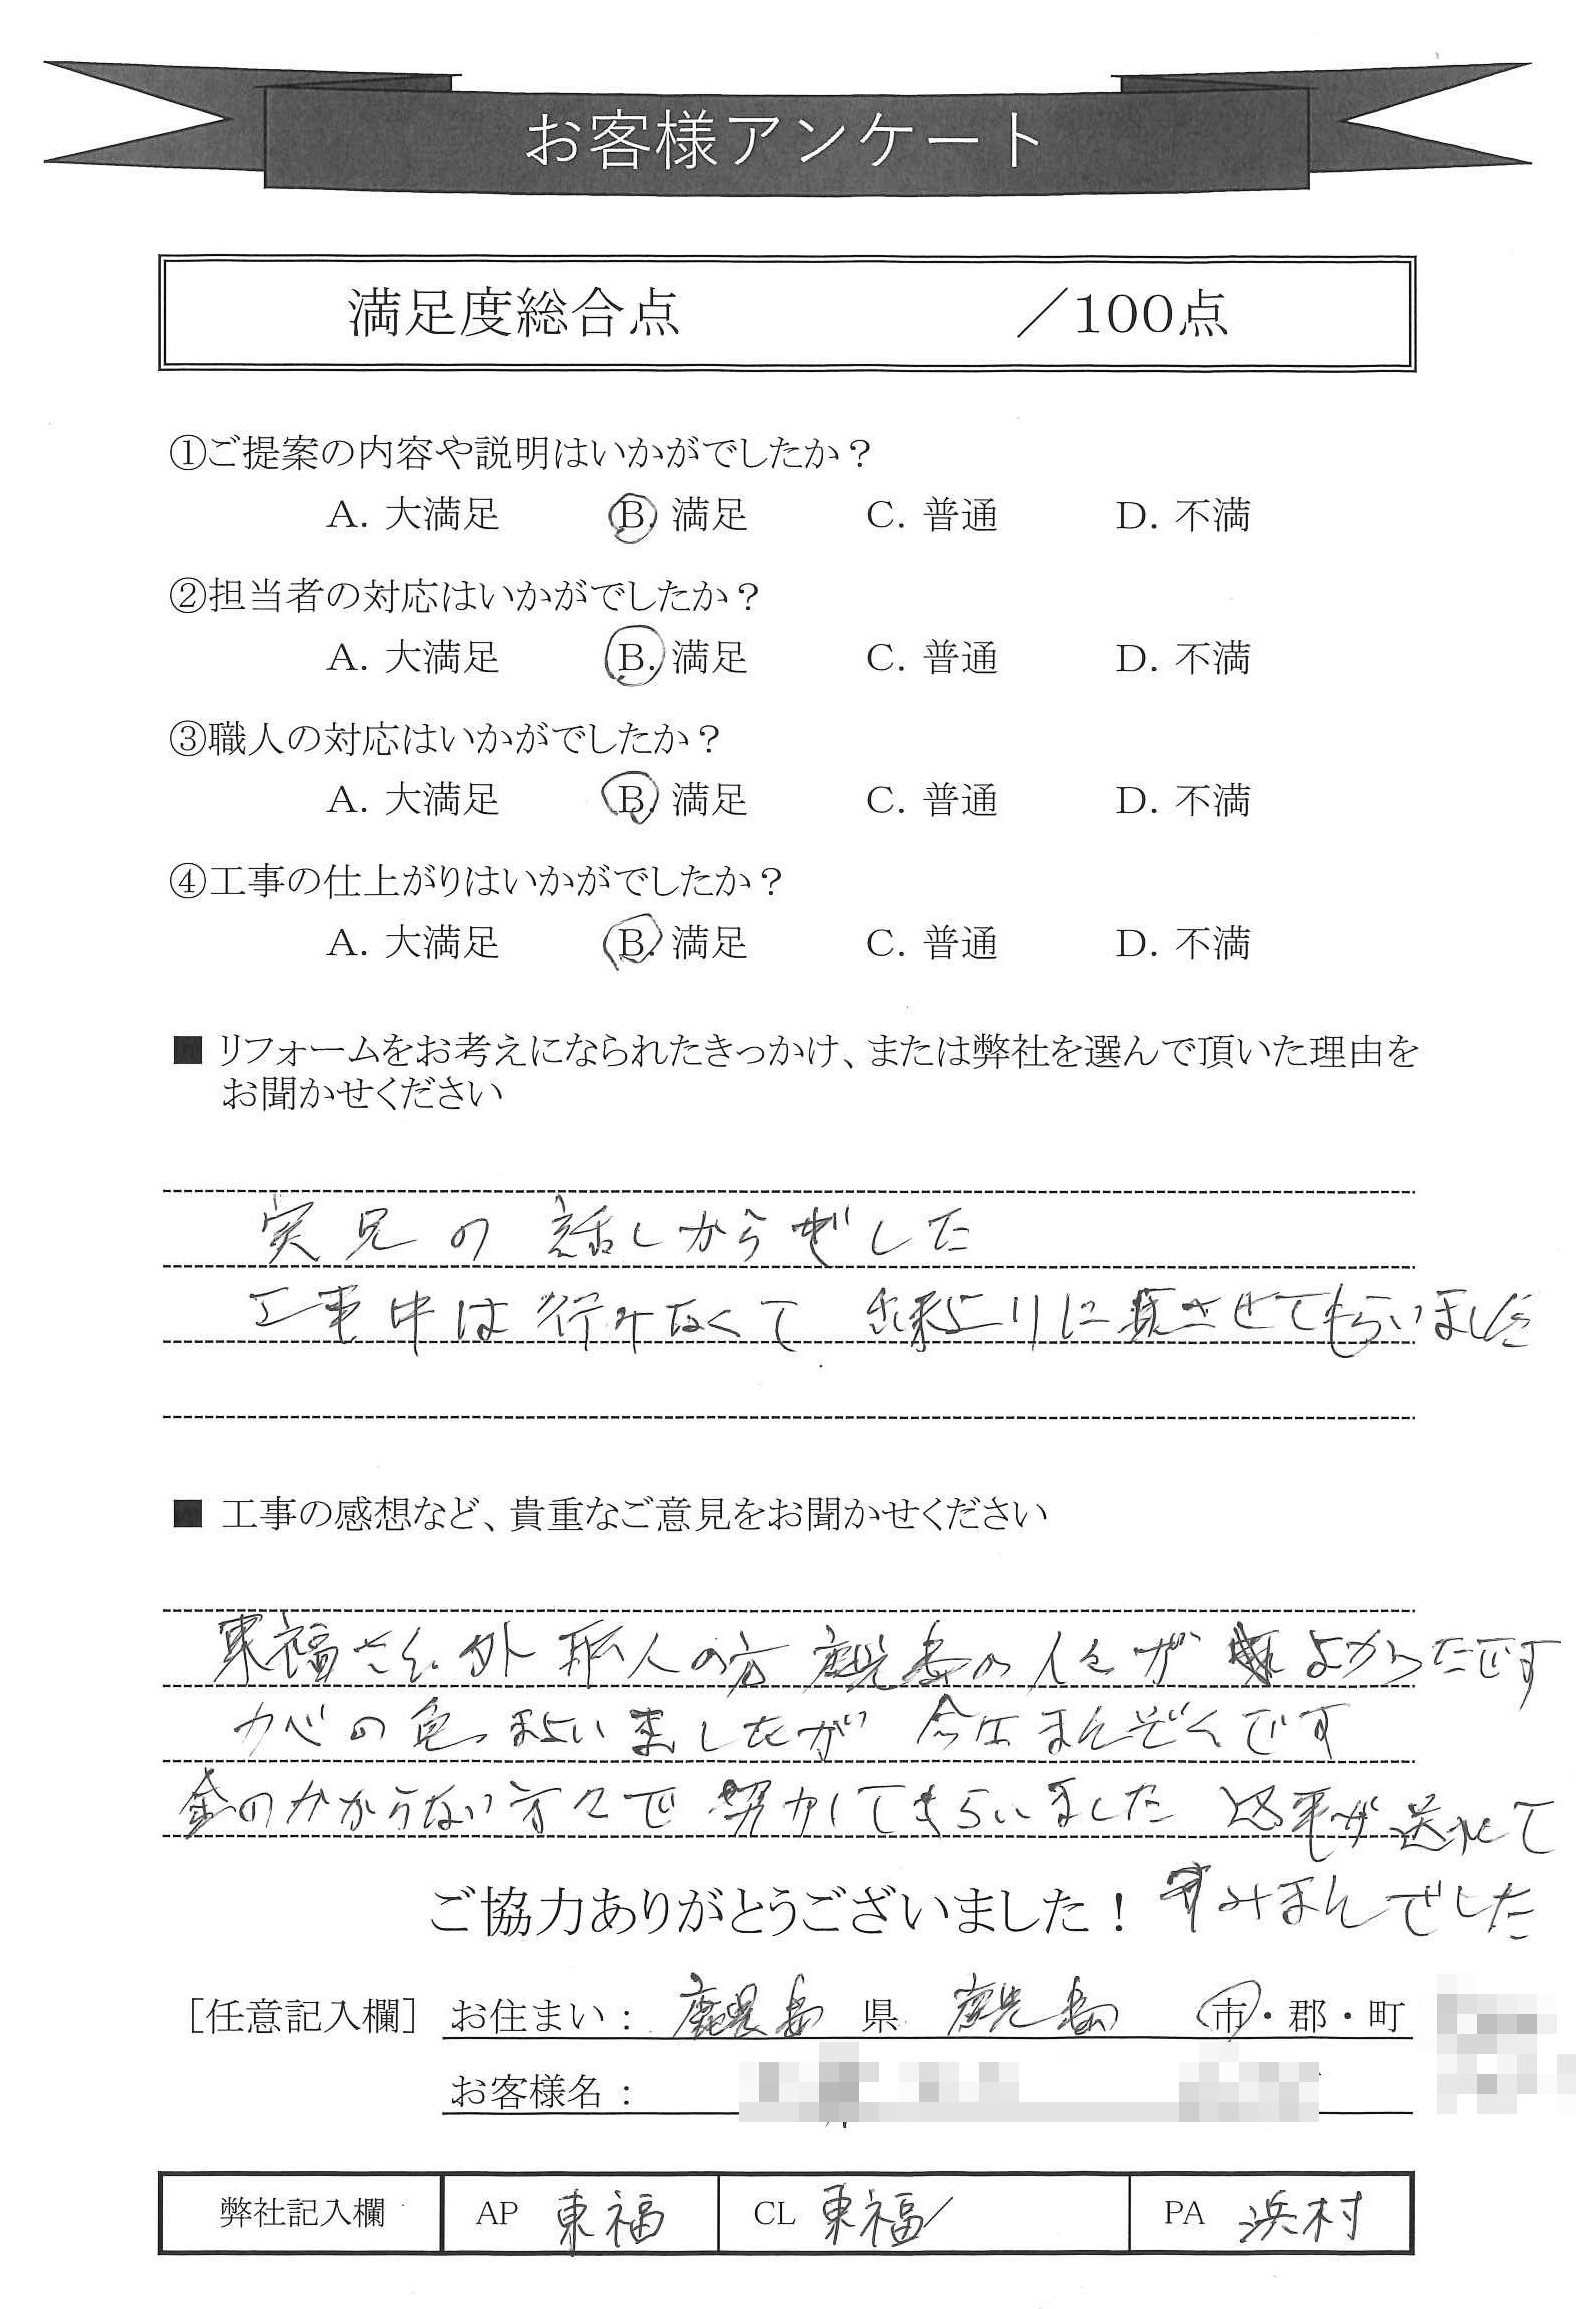 お客様アンケート
満足度総合点 ／100点
①ご提案の内容や説明はいかがでしたか？
A. 大満足 B. 満足 C. 普通 D. 不満
②担当者の対応はいかがでしたか？
A. 大満足 B. 満足 C. 普通 D. 不満
③職人の対応はいかがでしたか？
A. 大満足 B. 満足 C. 普通 D. 不満
④工事の仕上がりはいかがでしたか？
A. 大満足 B. 満足 C. 普通 D. 不満
■ リフォームをお考えになられたきっかけ、または弊社を選んで頂いた理由を
お聞かせください
実兄の話しからでした
工事中は行けなくて 出来上りに させてもらいました
■ 工事の感想など、貴重なご意見をお聞かせください
東福さん外 職人の方 鹿児島の人々が よかったです
カベの色 まよいましたが 今はまんぞくです
金のかからない方々で 努力してもらいました 返事が送れて
ご協力ありがとうございました！ すみませんでした
［任意記入欄］ お住まい： 鹿児島 県 鹿児島 市・郡・町
お客様名：
弊社記入欄 AP 東福 CL 東福 PA 浜村